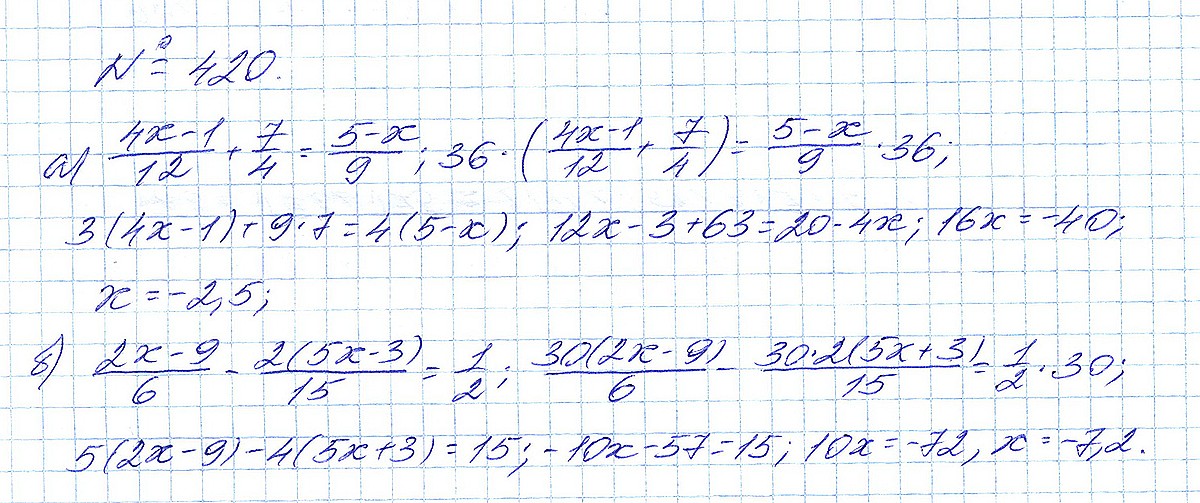 № 420.
а) (4x-1)/12 + 7/4 = (5-x)/9; 36·((4x-1)/12 + 7/4) = (5-x)/9 · 36;
3(4x-1)+9·7=4(5-x); 12x-3+63=20-4x; 16x=-40;
x=-2,5;
б) (2x-9)/6 - 2(5x-3)/15 = 1/2; 30(2x-9)/6 - 30·2(5x+3)/15 = 1/2 · 30;
5(2x-9)-4(5x+3)=15; -10x-57=15; 10x=-72, x=-7,2.